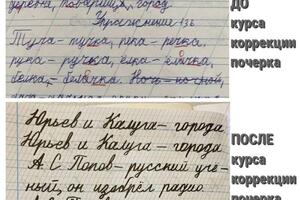 деревна, товарищ, город
Упражнение 136
Туча - тучка, река - речка,
рука - ручка, ёлка - ёлочка,
белка, - белочка.
ДО
курса
коррекции
почерка
Юрьев и Калуга - города
Юрьев и Калуга - города
А. С. Попов - русский учё-
ный, он изобрёл радио.
ПОСЛЕ
курса
коррекции
почерка